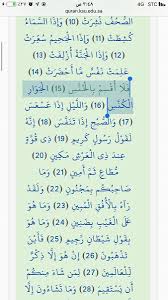 4G STC
٣:٤٨ ص
quran.ksu.edu.sa
الصُّحُفُ نُشِرَتْ (10) وَإِذَا السَّمَاءُ
كُشِطَتْ (11) وَإِذَا الْجَحِيمُ سُعِّرَتْ
(12) وَإِذَا الْجَنَّةُ أُزْلِفَتْ (13)
عَلِمَتْ نَفْسٌ مَّا أَحْضَرَتْ (14)
فَلَا أُقْسِمُ بِالْخُنَّسِ (15) الْجَوَارِ
الْكُنَّسِ (16) وَاللَّيْلِ إِذَا عَسْعَسَ
(17) وَالصُّبْحِ إِذَا تَنَفَّسَ (18) إِنَّهُ
لَقَوْلُ رَسُولٍ كَرِيمٍ (19) ذِي قُوَّةٍ
عِندَ ذِي الْعَرْشِ مَكِينٍ (20)
مُّطَاعٍ ثَمَّ أَمِينٍ (21) وَمَا
صَاحِبُكُم بِمَجْنُونٍ (22) وَلَقَدْ
رَآهُ بِالْأُفُقِ الْمُبِينِ (23) وَمَا هُوَ
عَلَى الْغَيْبِ بِضَنِينٍ (24) وَمَا هُوَ
بِقَوْلِ شَيْطَانٍ رَّجِيمٍ (25) فَأَيْنَ
تَذْهَبُونَ (26) إِنْ هُوَ إِلَّا ذِكْرٌ
لِّلْعَالَمِينَ (27) لِمَن شَاءَ مِنكُمْ
أَن يَسْتَقِيمَ (28) وَمَا تَشَاءُونَ إِلَّا